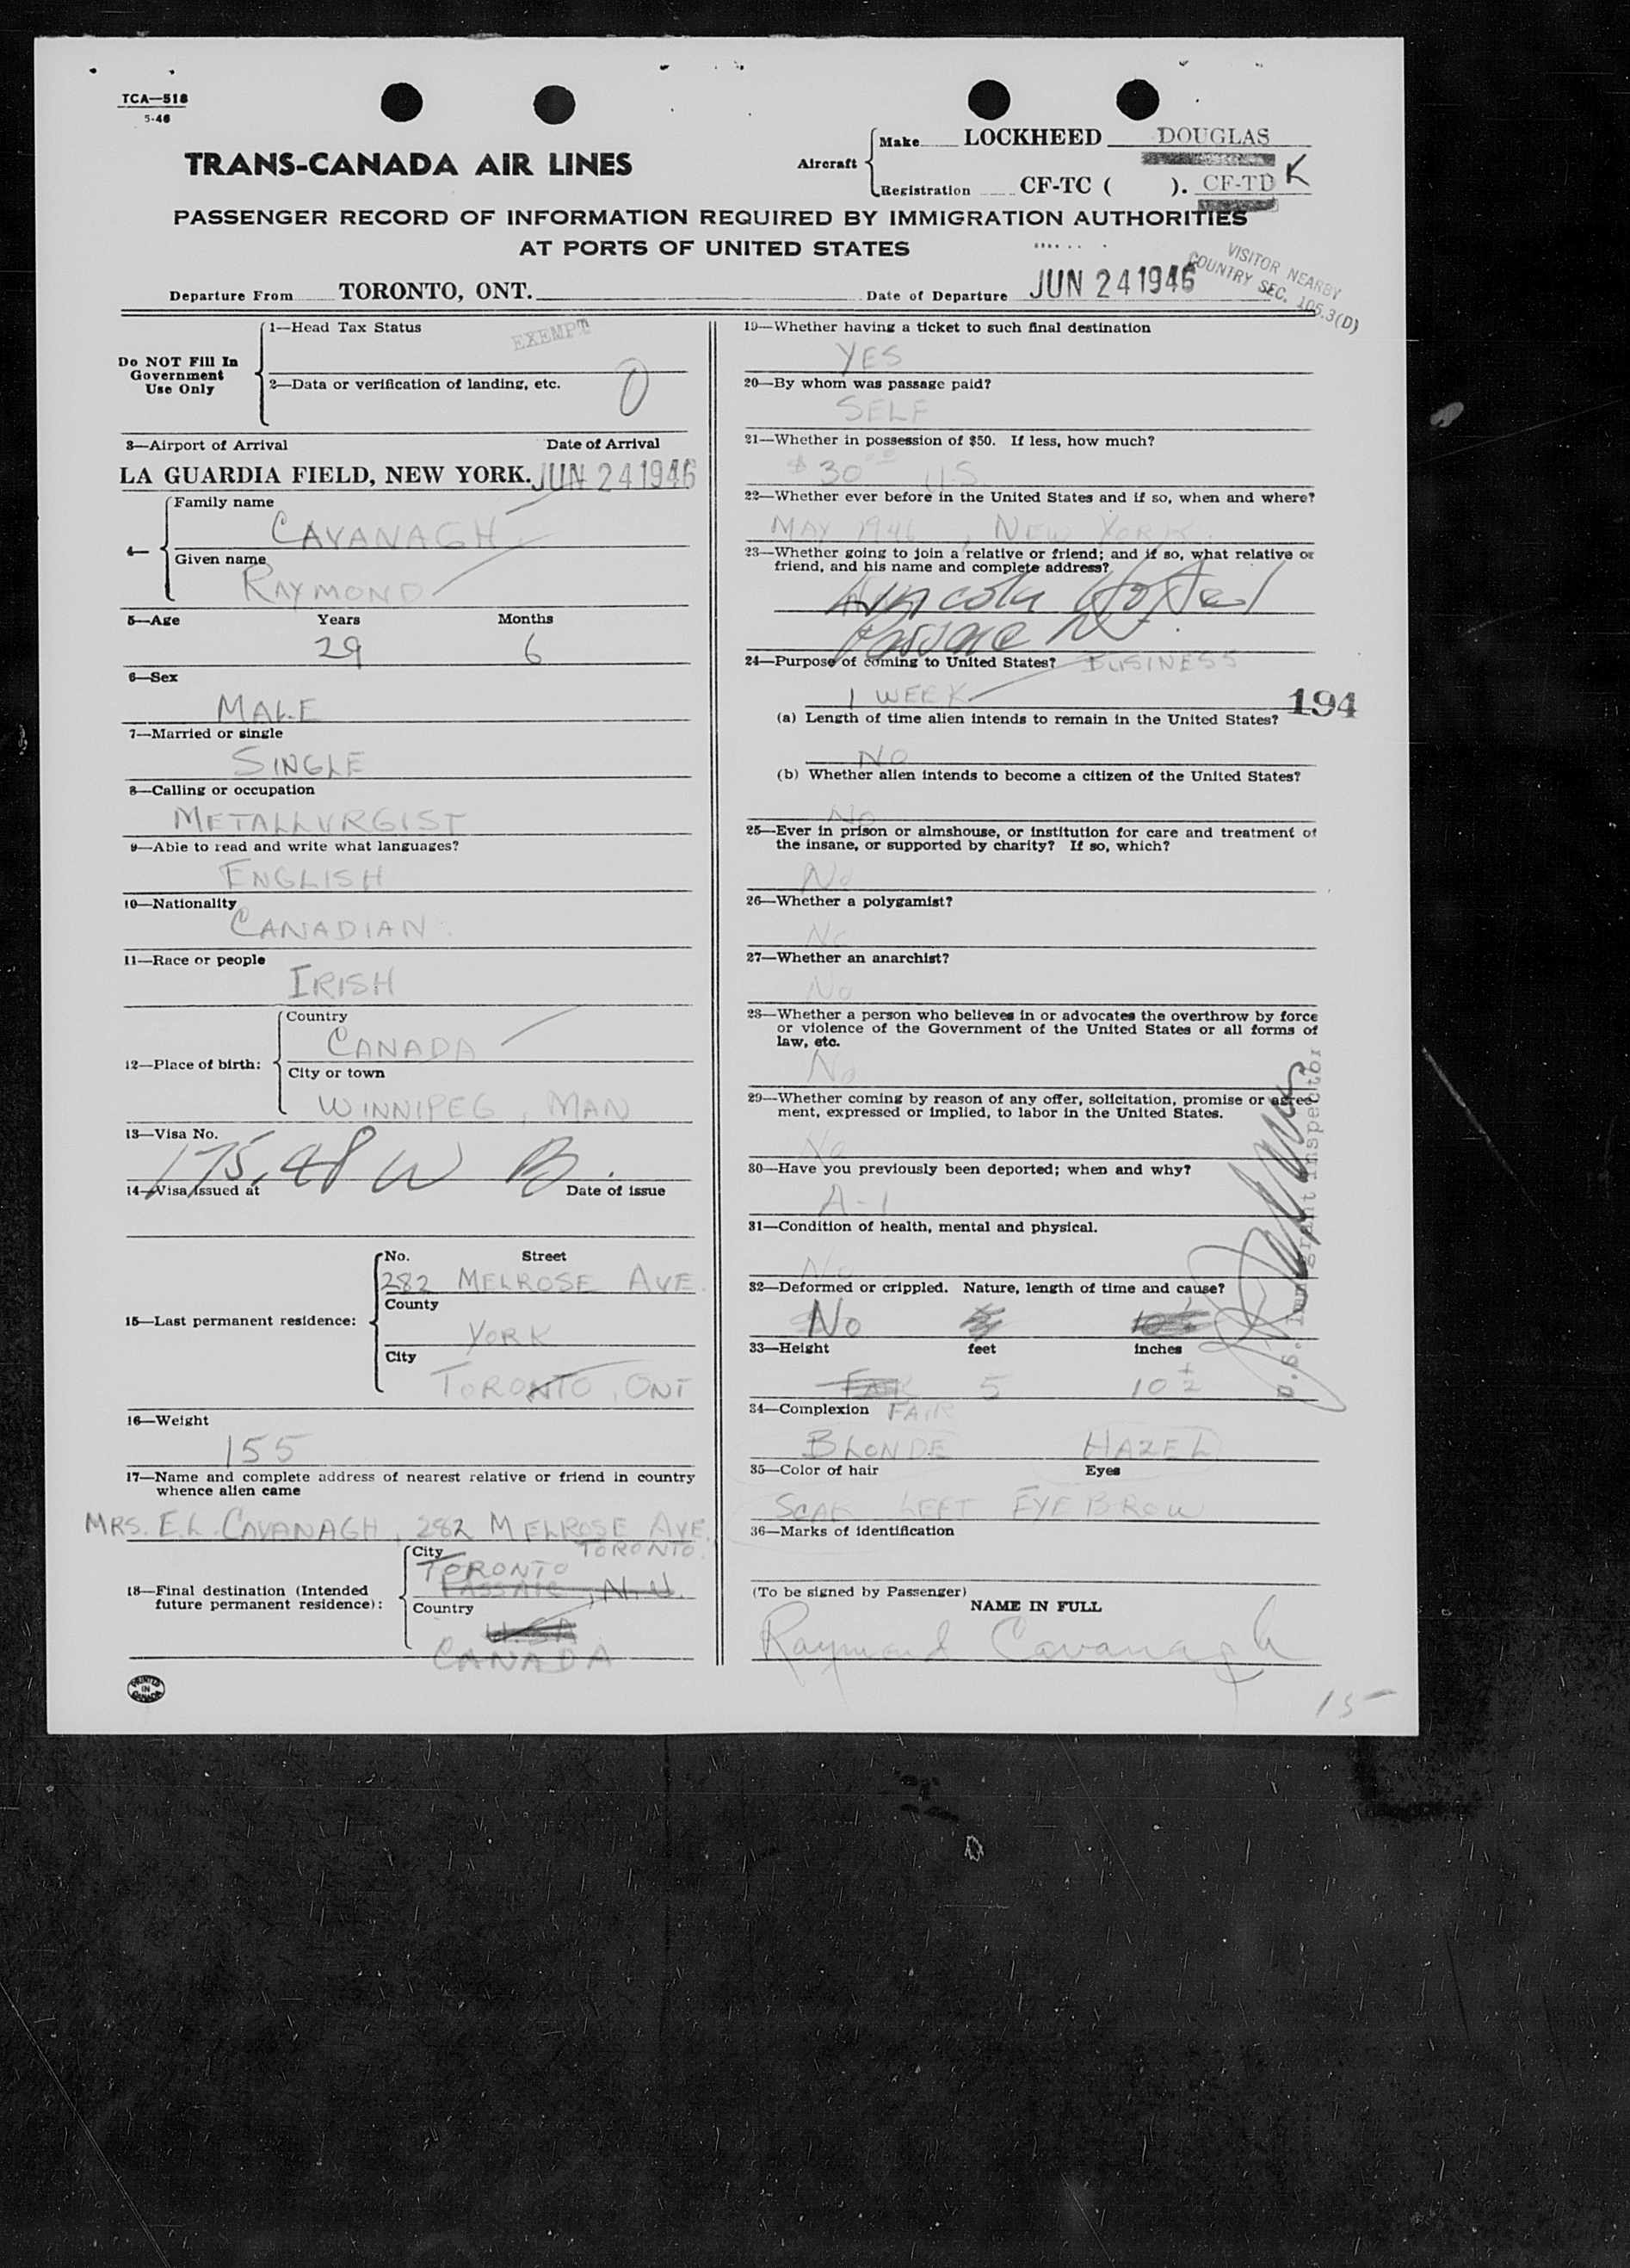 TCA—518
5-46
TRANS-CANADA AIR LINES
Aircraft
Make LOCKHEED DOUGLAS
Registration CF-TC ( ). CF-TD K
PASSENGER RECORD OF INFORMATION REQUIRED BY IMMIGRATION AUTHORITIES
AT PORTS OF UNITED STATES
VISITOR NEARBY
COUNTRY SEC. 105.3(D)
Departure From TORONTO, ONT. Date of Departure JUN 24 1946
Do NOT Fill In
Government
Use Only
1—Head Tax Status
EXEMPT
2—Data or verification of landing, etc.
0
3—Airport of Arrival Date of Arrival
LA GUARDIA FIELD, NEW YORK. JUN 24 1946
4—
Family name
CAVANAGH
Given name
RAYMOND
5—Age Years Months
29 6
6—Sex
MALE
7—Married or single
SINGLE
8—Calling or occupation
METALLURGIST
9—Able to read and write what languages?
ENGLISH
10—Nationality
CANADIAN.
11—Race or people
IRISH
12—Place of birth:
Country
CANADA
City or town
WINNIPEG, MAN
13—Visa No.
175.48 W B.
14—Visa issued at Date of issue
15—Last permanent residence:
No. Street
282 MELROSE AVE.
County
YORK
City
TORONTO, ONT
16—Weight
155
17—Name and complete address of nearest relative or friend in country
whence alien came
MRS. E.L. CAVANAGH, 282 MELROSE AVE.
TORONTO.
18—Final destination (Intended
future permanent residence):
City
TORONTO
PASSAIC, N.J.
Country
U.S.A
CANADA
PRINTED
IN
CANADA
19—Whether having a ticket to such final destination
YES
20—By whom was passage paid?
SELF
21—Whether in possession of $50. If less, how much?
$30.00 U.S.
22—Whether ever before in the United States and if so, when and where?
MAY 1946, NEW YORK.
23—Whether going to join a relative or friend; and if so, what relative or
friend, and his name and complete address?
Lincoln Hotel
Passaic NJ.
24—Purpose of coming to United States? BUSINESS
1 WEEK
194
(a) Length of time alien intends to remain in the United States?
NO
(b) Whether alien intends to become a citizen of the United States?
No
25—Ever in prison or almshouse, or institution for care and treatment of
the insane, or supported by charity? If so, which?
No
26—Whether a polygamist?
No
27—Whether an anarchist?
No
28—Whether a person who believes in or advocates the overthrow by force
or violence of the Government of the United States or all forms of
law, etc.
No
29—Whether coming by reason of any offer, solicitation, promise or agree-
ment, expressed or implied, to labor in the United States.
No
30—Have you previously been deported; when and why?
A-1
31—Condition of health, mental and physical.
No
32—Deformed or crippled. Nature, length of time and cause?
No
33—Height feet inches
FAIR 5 10 ½
34—Complexion FAIR
BLONDE HAZEL
35—Color of hair Eyes
SCAR LEFT EYEBROW
36—Marks of identification
U.S. Immigrant Inspector
(To be signed by Passenger)
NAME IN FULL
Raymond Cavanagh
15